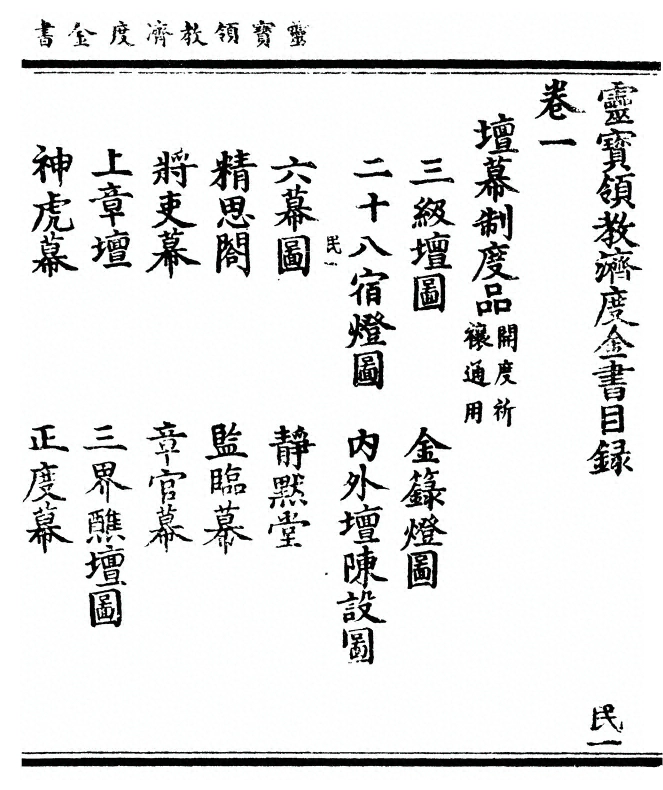 靈寶領教濟度金書
靈寶領教濟度金書目録
民一
卷一
壇幕制度品
開度祈
禳通用
三級壇圖
金籙燈圖
二十八宿燈圖
內外壇陳設圖
民一
六幕圖
靜默堂
精思閣
監臨幕
將吏幕
章官幕
上章壇
三界醮壇圖
神虎幕
正度幕